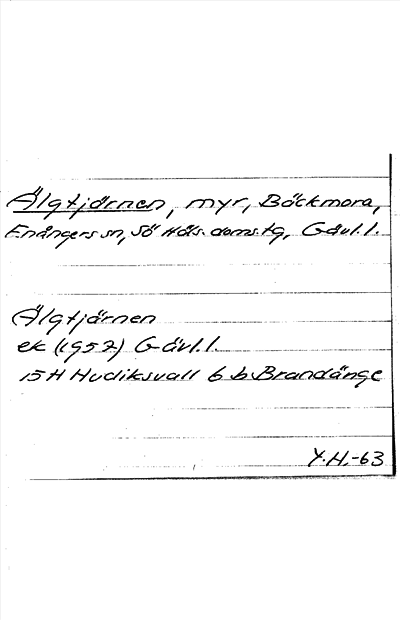 Älgtjärnen, myr, Böckmora,
Enångers sn, Sö Häls. doms.tg, Gävl.l.
Älgtjärnen
ek (1957) Gävl.l.
15H Hudiksvall 6 b Brandänge
Y.H.-63